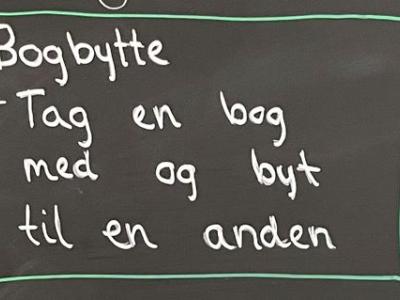 Bogbytte
- Tag en bog
med og byt
til en anden